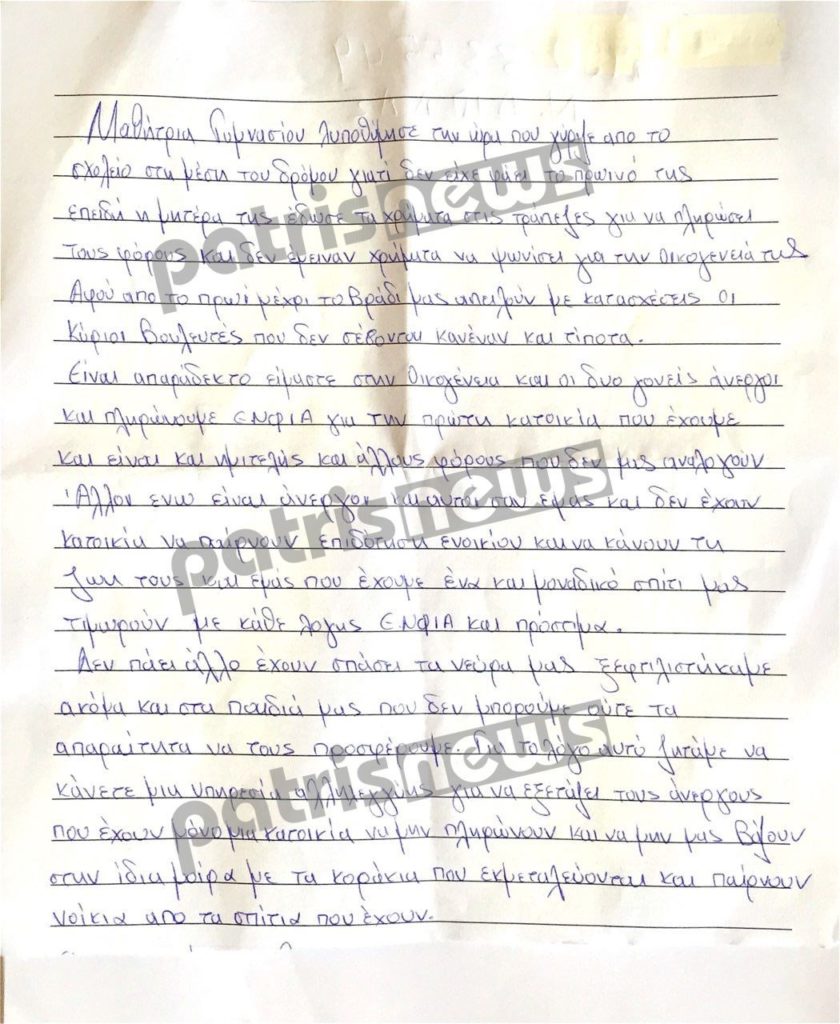 Μαθήτρια Γυμνασίου λυποθήμησε την ώρα που γύριζε απο το
σχολείο στη μέση του δρόμου γιατί δεν είχε φάει το πρωινό της
επειδή η μητέρα της έδωσε τα χρήματα στις τράπεζες για να πληρώσει
τους φόρους και δεν έμειναν χρήματα να ψωνίσει για την Οικογένειά της
Αφού απο το πρωί μέχρι το Βράδι μας απειλούν με κατασχέσεις Οι
Κύριοι Βουλευτές που δεν σέβονται κανέναν και τίποτα.
Είναι απαράδεκτο είμαστε στην Οικογένεια και οι δυο γονείς άνεργοι
και πληρώνουμε ΕΝΦΙΑ για την πρώτη κατοικία που έχουμε
και είναι και ημιτελής και άλλους φόρους που δεν μας αναλογούν
Άλλοι ενώ είναι άνεργοι και αυτοί σαν εμάς και δεν έχουν
κατοικία να παίρνουν επιδότηση ενοικίου και να κάνουν τη
ζωή τους και εμάς που έχουμε ένα και μοναδικό σπίτι μας
τιμωρούν με κάθε λογης ΕΝΦΙΑ και πρόστιμα.
Δεν πάει άλλο έχουν σπάσει τα νεύρα μας ξεφτιλιστήκαμε
ακόμα και στα παιδιά μας που δεν μπορούμε ούτε τα
απαραίτητα να τους προσφέρουμε. Για το λόγο αυτό ζητάμε να
κάνετε μια υπηρεσία αλληλεγγύης για να εξετάζει τους άνεργους
που έχουν μόνο μια κατοικία να μην πληρώνουν και να μην μας Βάζουν
στην ίδια μοίρα με τα κοράκια που εκμεταλεύονται και παίρνουν
νοίκια απο τα σπίτια που έχουν.
patrisnews
patrisnews
patrisnews